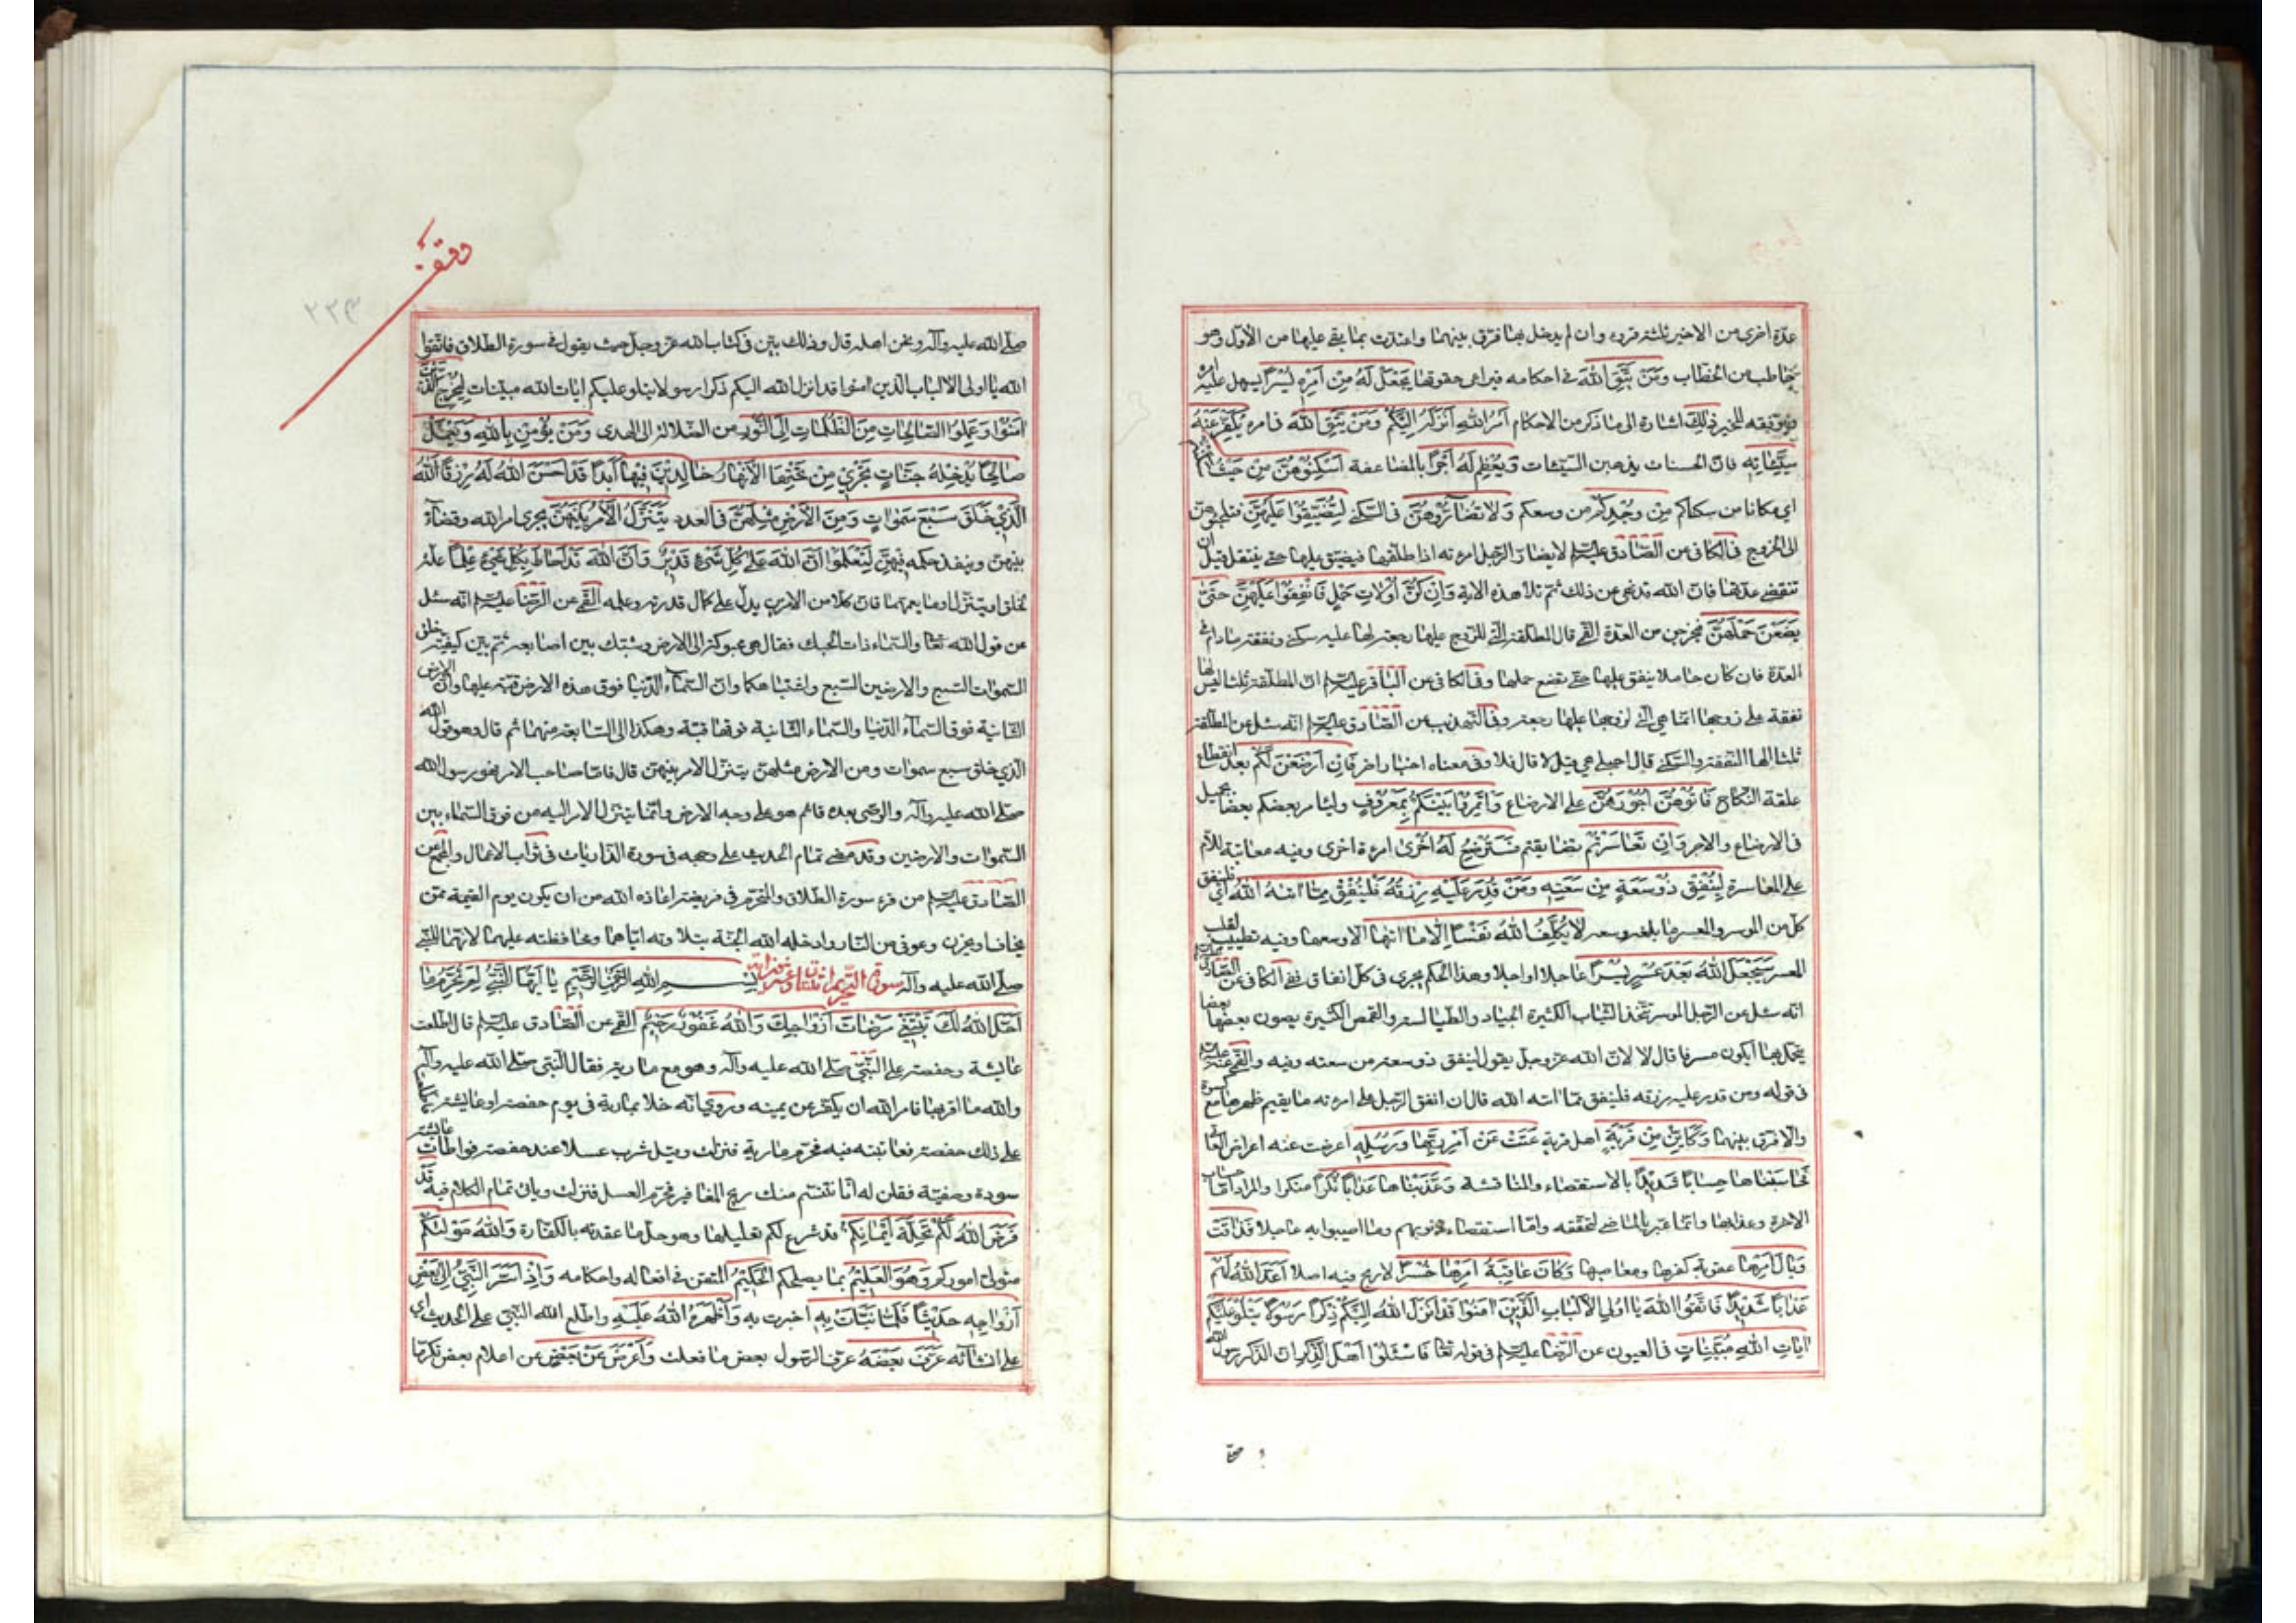 عدّة اخرى من الاخير ثلثة قروء وان لم يدخل بها فرّق بينهما واعتدّت بما بقى عليها من الاوّل وهو
خاطب من الخطاب وَمَنْ يَتَّقِ اللّٰهَ فى احكامه فيراعى حقوقها يَجْعَلْ لَهُ مِنْ اَمْرِهِ يُسْراً يسهل عليه امره
ويوفّقه للخير ذٰلِكَ اشارة الى ما ذكر من الاحكام اَمْرُ اللّٰهِ اَنْزَلَهُ اِلَيْكُمْ وَمَنْ يَتَّقِ اللّٰهَ فى امره يُكَفِّرْ عَنْهُ
سَيِّئَاتِهِ فانّ الحسنات يذهبن السيّئات وَيُعْظِمْ لَهُ اَجْراً بالمضاعفة اَسْكِنُوهُنَّ مِنْ حَيْثُ سَكَنْتُمْ
اى مكانا من سكناكم مِنْ وُجْدِكُمْ من وسعكم وَلَا تُضَارُّوهُنَّ فى السّكنى لِتُضَيِّقُوا عَلَيْهِنَّ فتلجئوهنّ
الى الخروج فى الكافى عن الصّادق عليه السلم لا يضارّ الرّجل امرءته اذا طلّقها فيضيّق عليها حتى ينتقل قبل ان
تنقضى عدّتها فانّ الله قد نهى عن ذلك ثمّ تلا هذه الاية وَاِنْ كُنَّ اُولَاتِ حَمْلٍ فَاَنْفِقُوا عَلَيْهِنَّ حَتّىٰ
يَضَعْنَ حَمْلَهُنَّ فيخرجن من العدّة القمى قال المطلّقة الّتى للزّوج عليها رجعة لها عليه سكنى ونفقة ما دام فى
العدّة فان كان حاملا ينفق عليها حتى تضع حملها وفى الكافى عن الباقر عليه السلم انّ المطلّقة ثلثا ليس لها
نفقة على زوجها انّما هى الّتى لزوجها عليها رجعة وفى التهذيب عن الصّادق عليه السلم انّه سئل عن المطلّقة
ثلثا الها النّفقة والسّكنى قال احبلى هى قيل لا قال فلا وفى معناه اخبار اخر فَاِنْ اَرْضَعْنَ لَكُمْ بعد انقطاع
علقة النّكاح فَاٰتُوهُنَّ اُجُورَهُنَّ على الارضاع وَأْتَمِرُوا بَيْنَكُمْ بِمَعْرُوفٍ وليامر بعضكم بعضا بجميل
فى الارضاع والاجر وَاِنْ تَعَاسَرْتُمْ تضايقتم فَسَتُرْضِعُ لَهُ اُخْرىٰ امرءة اخرى وفيه معاتبة للامّ
على المعاسرة لِيُنْفِقْ ذُو سَعَةٍ مِنْ سَعَتِهِ وَمَنْ قُدِرَ عَلَيْهِ رِزْقُهُ فَلْيُنْفِقْ مِمَّا اٰتٰيهُ اللّٰهُ اى فلينفق
كلّ من الموسر والمعسر ما بلغه وسعه لَا يُكَلِّفُ اللّٰهُ نَفْساً اِلَّا مَا اٰتٰيهَا الّا وسعها وفيه تطييب لقلب
المعسر سَيَجْعَلُ اللّٰهُ بَعْدَ عُسْرٍ يُسْراً عاجلا او اجلا وهذا الحكم يجرى فى كلّ انفاق ففى الكافى عن الصّادق عليه السلم
انّه سئل عن الرّجل الموسر يتّخذ الثياب الكثيرة الجياد والطيالسة والقمص الكثيرة يصون بعضها بعضا
يتجمّل بها ايكون مسرفا قال لا لانّ الله عزّ وجلّ يقول لينفق ذو سعة من سعته وفيه والقمى عنه عليه السلم
فى قوله ومن قدر عليه رزقه فلينفق ممّا اتيه الله قال ان انفق الرّجل على امرءته ما يقيم ظهرها مع كسوة
والّا فرّق بينهما وَكَاَيِّنْ مِنْ قَرْيَةٍ اهل قرية عَتَتْ عَنْ اَمْرِ رَبِّهَا وَرُسُلِهِ اعرضت عنه اعراض العاتى
فَحَاسَبْنَاهَا حِسَاباً شَدِيداً بالاستقصاء والمناقشة وَعَذَّبْنَاهَا عَذَاباً نُكْراً منكرا والمراد حساب
الاخرة وعذابها وانّما عبّر بالماضى لتحقّقه وامّا استقصاء ذنوبهم وما اصيبوا به عاجلا فَذَاقَتْ
وَبَالَ اَمْرِهَا عقوبة كفرها ومعاصيها وَكَانَ عَاقِبَةُ اَمْرِهَا خُسْراً لا ربح فيه اصلا اَعَدَّ اللّٰهُ لَهُمْ
عَذَاباً شَدِيداً فَاتَّقُوا اللّٰهَ يَا اُولِى الْاَلْبَابِ الَّذِينَ اٰمَنُوا قَدْ اَنْزَلَ اللّٰهُ اِلَيْكُمْ ذِكْراً رَسُولاً يَتْلُو عَلَيْكُمْ
اٰيَاتِ اللّٰهِ مُبَيِّنَاتٍ فى العيون عن الرّضا عليه السلم فى قوله تعا فَاسْئَلُوا اَهْلَ الذِّكْرِ انّ الذّكر رسول الله
وقف
٢٢٣
صلّى الله عليه وآله ونحن اهله قال وذلك بيّن فى كتاب الله عزّ وجلّ حيث يقول فى سورة الطّلاق فاتّقوا
الله يا اولى الالباب الّذين امنوا قد انزل الله اليكم ذكرا رسولا يتلو عليكم ايات الله مبيّنات لِيُخْرِجَ الَّذِينَ
اٰمَنُوا وَعَمِلُوا الصَّالِحَاتِ مِنَ الظُّلُمَاتِ اِلَى النُّورِ من الضّلالة الى الهدى وَمَنْ يُؤْمِنْ بِاللّٰهِ وَيَعْمَلْ
صَالِحاً يُدْخِلْهُ جَنَّاتٍ تَجْرِى مِنْ تَحْتِهَا الْاَنْهَارُ خَالِدِينَ فِيهَا اَبَداً قَدْ اَحْسَنَ اللّٰهُ لَهُ رِزْقاً اَللّٰهُ
الَّذِى خَلَقَ سَبْعَ سَمٰوَاتٍ وَمِنَ الْاَرْضِ مِثْلَهُنَّ فى العدد يَتَنَزَّلُ الْاَمْرُ بَيْنَهُنَّ يجرى امر الله وقضاؤه
بينهنّ وينفذ حكمه فيهنّ لِتَعْلَمُوا اَنَّ اللّٰهَ عَلىٰ كُلِّ شَىْءٍ قَدِيرٌ وَاَنَّ اللّٰهَ قَدْ اَحَاطَ بِكُلِّ شَىْءٍ عِلْماً علّة
لخلق او يتنزّل او ما يعمّهما فانّ كلّا من الامرين يدلّ على كمال قدرته وعلمه القمى عن الرّضا عليه السلم انّه سئل
عن قول الله تعا والسّماء ذات الحبك فقال هى محبوكة الى الارض وشبّك بين اصابعه ثمّ بيّن كيفيّة خلق
السّموات السّبع والارضين السّبع واشتباكها وانّ السّماء الدّنيا فوق هذه الارض قبّة عليها وانّ الارض
الثّانية فوق السّماء الدّنيا والسّماء الثّانية فوقها قبّة وهكذا الى السّابعة منهما ثم قال وهو قول الله
الّذى خلق سبع سموات ومن الارض مثلهنّ يتنزّل الامر بينهنّ قال فامّا صاحب الامر فهو رسول الله
صلّى الله عليه وآله والوصى بعده قائم هو على وجه الارض وانّما يتنزّل الامر اليه من فوق السّماء بين
السّموات والارضين وقد مضى تمام الحديث على وجهه فى سورة الذّاريات فى ثواب الاعمال والمجمع عن
الصّادق عليه السلم من قرء سورة الطّلاق والتّحريم فى فريضة اعاذه الله من ان يكون يوم القيمة ممّن
يخاف او يحزن وعوفى من النّار وادخله الله الجنّة بتلاوته ايّاهما ومحافظته عليهما لانّهما للنّبىّ
صلّى الله عليه وآله سورة التّحريم اثنتا عشرة اية بِسْمِ اللّٰهِ الرَّحْمٰنِ الرَّحِيمِ يَا اَيُّهَا النَّبِىُّ لِمَ تُحَرِّمُ مَا
اَحَلَّ اللّٰهُ لَكَ تَبْتَغِى مَرْضَاتَ اَزْوَاجِكَ وَاللّٰهُ غَفُورٌ رَحِيمٌ القمى عن الصّادق عليه السلم قال اطّلعت
عايشة وحفصة على النّبىّ صلّى الله عليه وآله وهو مع مارية فقال النّبى صلّى الله عليه وآله
والله ما اقربها فامر الله ان يكفّر عن يمينه وروى انّه خلا بمارية فى يوم حفصة او عايشة
على ذلك حفصة فعاتبته فيه فحرّم مارية فنزلت وقيل شرب عسلا عند حفصة فواطات عايشة
سودة وصفيّة فقلن له انّا نشمّ منك ريح المغافير فحرّم العسل فنزلت وياتى تمام الكلام فيه قَدْ
فَرَضَ اللّٰهُ لَكُمْ تَحِلَّةَ اَيْمَانِكُمْ قد شرع لكم تحليلها وهو حلّ ما عقدته بالكفّارة وَاللّٰهُ مَوْلٰيكُمْ
متولّى اموركم وَهُوَ الْعَلِيمُ بما يصلحكم الْحَكِيمُ المتقن فى افعاله واحكامه وَاِذْ اَسَرَّ النَّبِىُّ اِلىٰ بَعْضِ
اَزْوَاجِهِ حَدِيثاً فَلَمَّا نَبَّاَتْ بِهِ اخبرت به وَاَظْهَرَهُ اللّٰهُ عَلَيْهِ واطلع الله النّبى على الحديث اى
على افشائه عَرَّفَ بَعْضَهُ عرّف الرّسول بعض ما فعلت وَاَعْرَضَ عَنْ بَعْضٍ عن اعلام بعض تكرّما